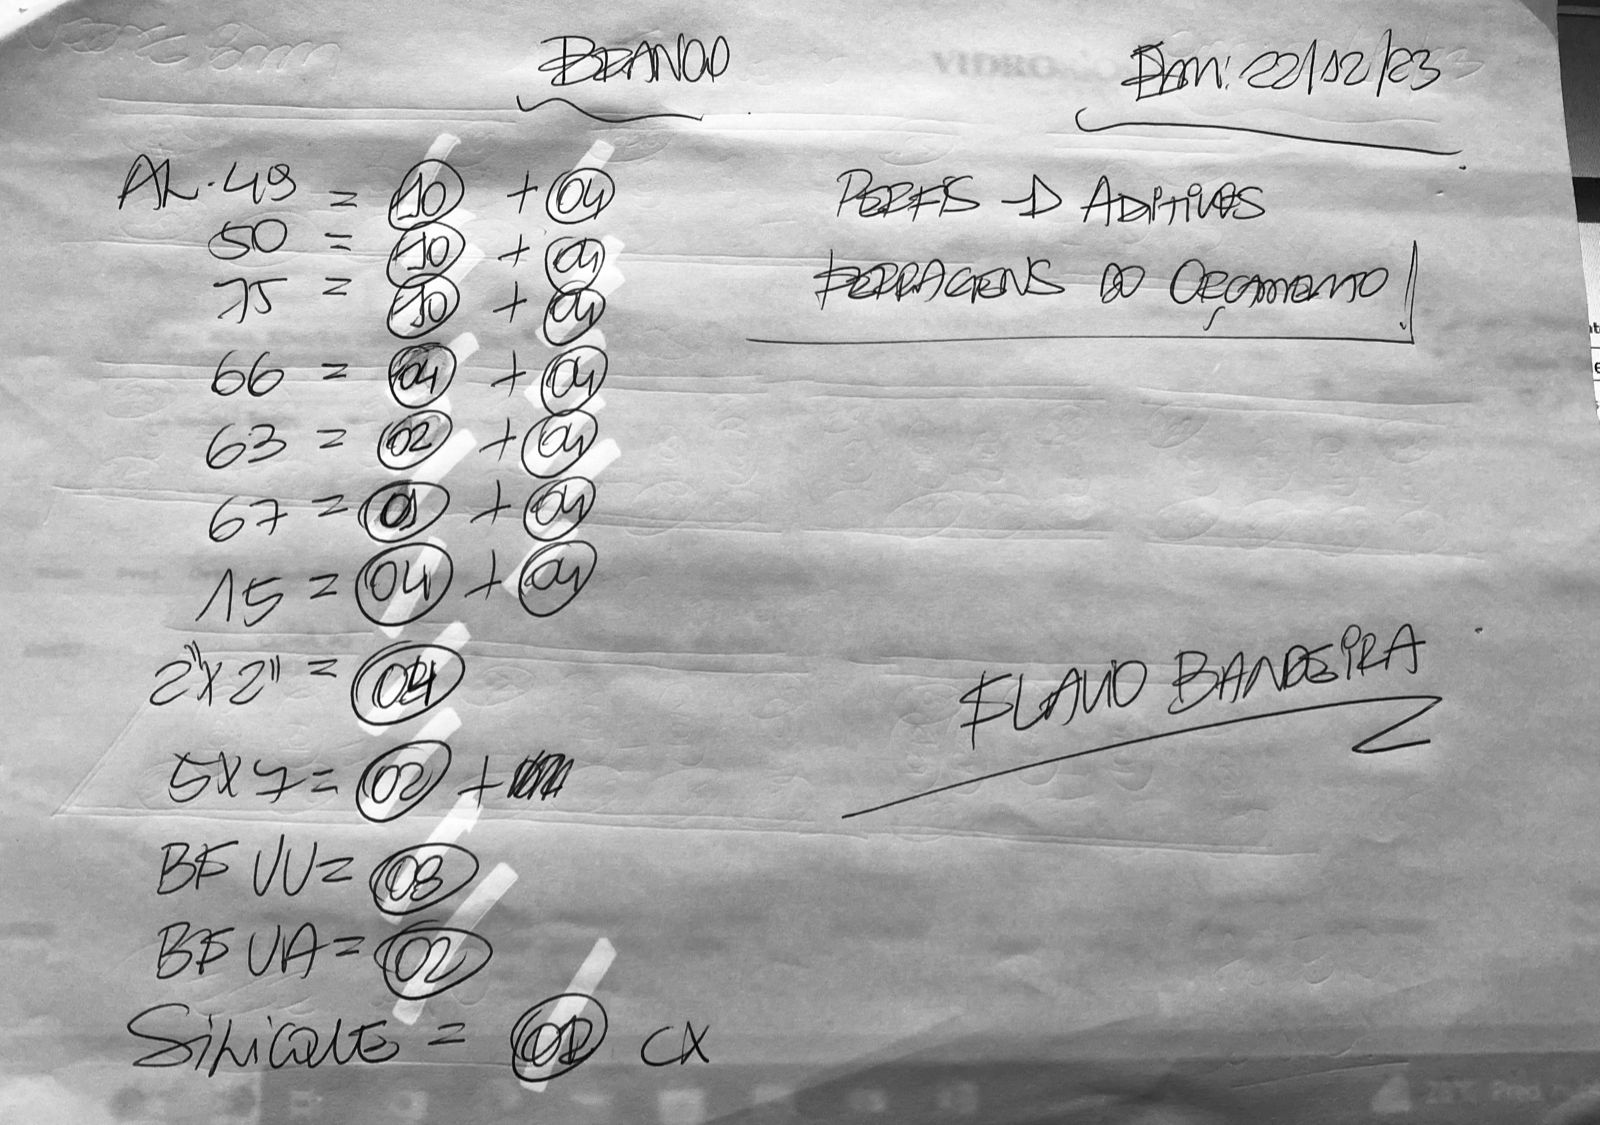 BRANCO
Em: 22/12/23
AL.49 = 10 + 04
50 = 10 + 04
75 = 10 + 04
66 = 04 + 04
63 = 02 + 04
67 = 01 + 04
15 = 04 + 04
2"x2" = 04
5x7 = 02 +
BF VV = 08
BF VA = 02
SiLiCONE = 01 CX
PERFIS D ADITIVOS
FERRAGENS DO ORÇAMENTO!
FLAVIO BANDEIRA
VIDRO